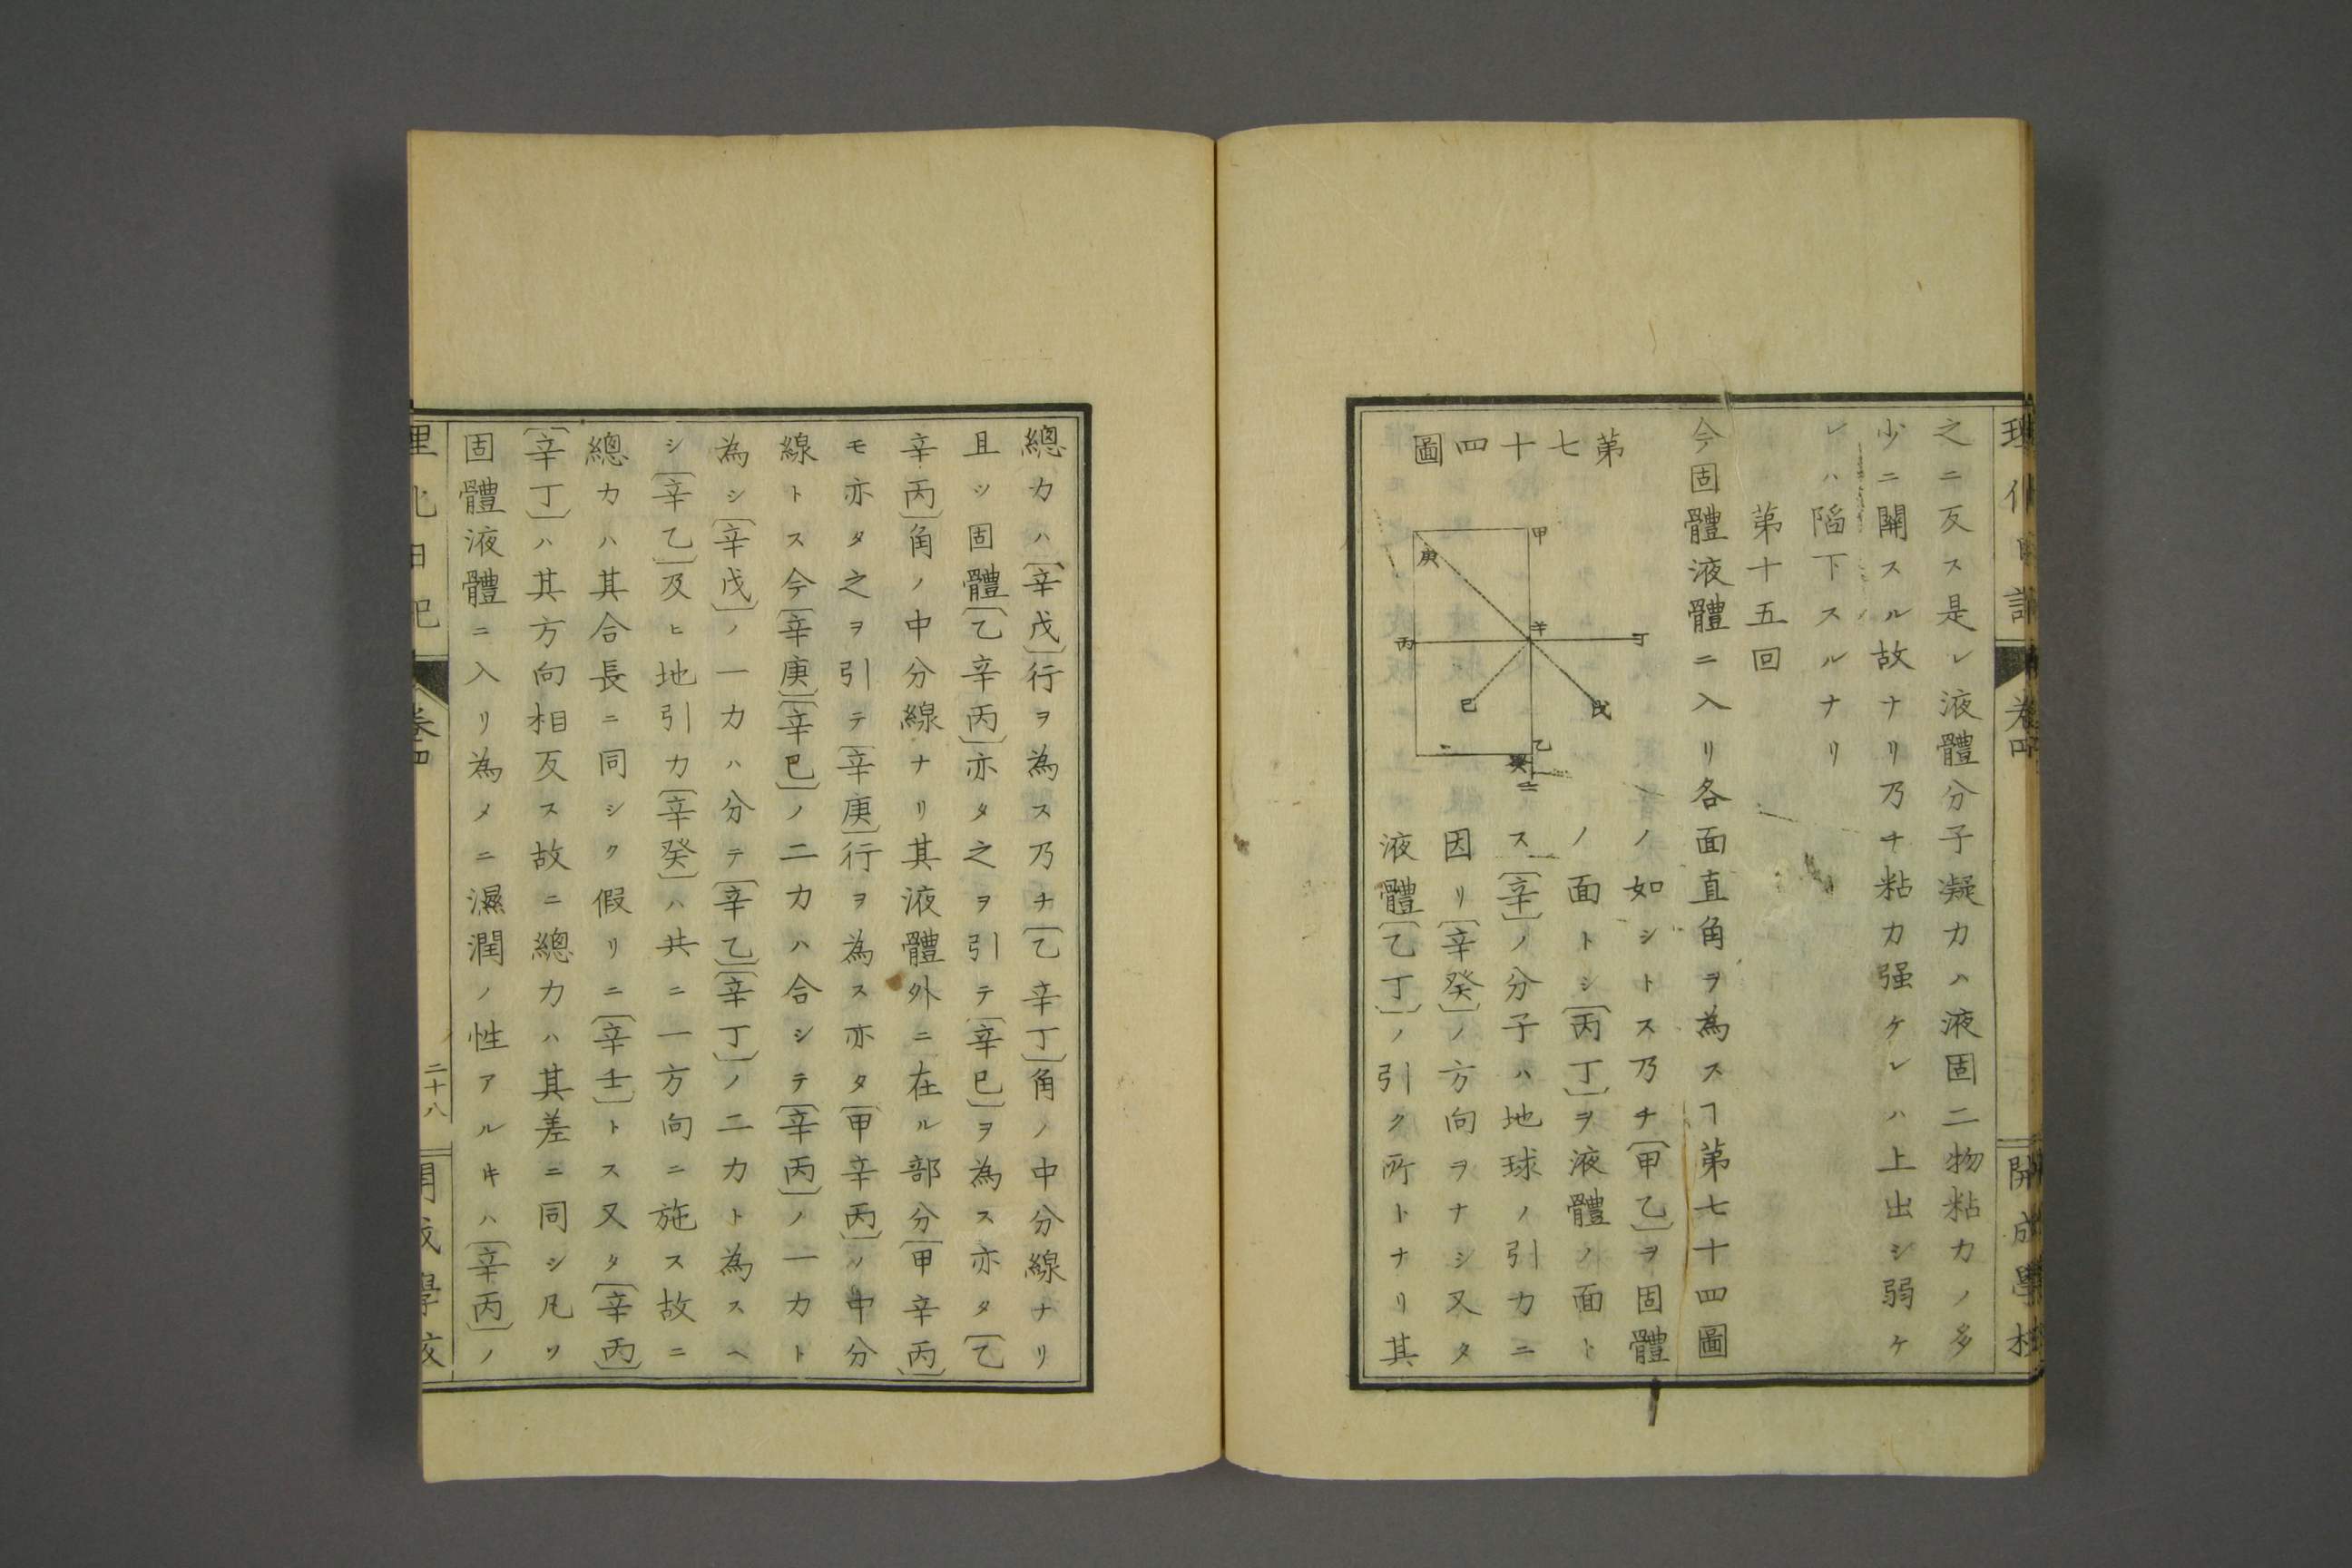 之ニ反ス是レ液體分子凝力ハ液固二物粘力ノ多
少ニ關スル故ナリ乃チ粘力强ケレハ上出シ弱ケ
レハ陷下スルナリ
第十五回
今固體液體ニ入リ各面直角ヲ為スヿ第七十四圖
ノ如シトス乃チ〔甲乙〕ヲ固體
ノ面トシ〔丙丁〕ヲ液體ノ面ト
ス〔辛〕ノ分子ハ地球ノ引力ニ
因リ〔辛癸〕ノ方向ヲナシ又タ
液體〔乙丁〕ノ引ク所トナリ其
第七十四圖
甲
庚
丙
辛
丁
己
戊
乙
癸
壬
開成學校
總力ハ〔辛戊〕行ヲ為ス乃チ〔乙辛丁〕角ノ中分線ナリ
且ツ固體〔乙辛丙〕亦タ之ヲ引テ〔辛巳〕ヲ為ス亦タ〔乙
辛丙〕角ノ中分線ナリ其液體外ニ在ル部分〔甲辛丙〕
モ亦タ之ヲ引テ〔辛庚〕行ヲ為ス亦タ〔甲辛丙〕ノ中分
線トス今〔辛庚〕〔辛巳〕ノ二力ハ合シテ〔辛丙〕ノ一力ト
為シ〔辛戊〕ノ一力ハ分テ〔辛乙〕〔辛丁〕ノ二力ト為スヘ
シ〔辛乙〕及ヒ地引力〔辛癸〕ハ共ニ一方向ニ施ス故ニ
總力ハ其合長ニ同シク假リニ〔辛壬〕トス又タ〔辛丙〕
〔辛丁〕ハ其方向相反ス故ニ總力ハ其差ニ同シ凡ソ
固體液體ニ入リ為メニ濕潤ノ性アルキハ〔辛丙〕ノ
理化日記
卷四
二十八
開成學校